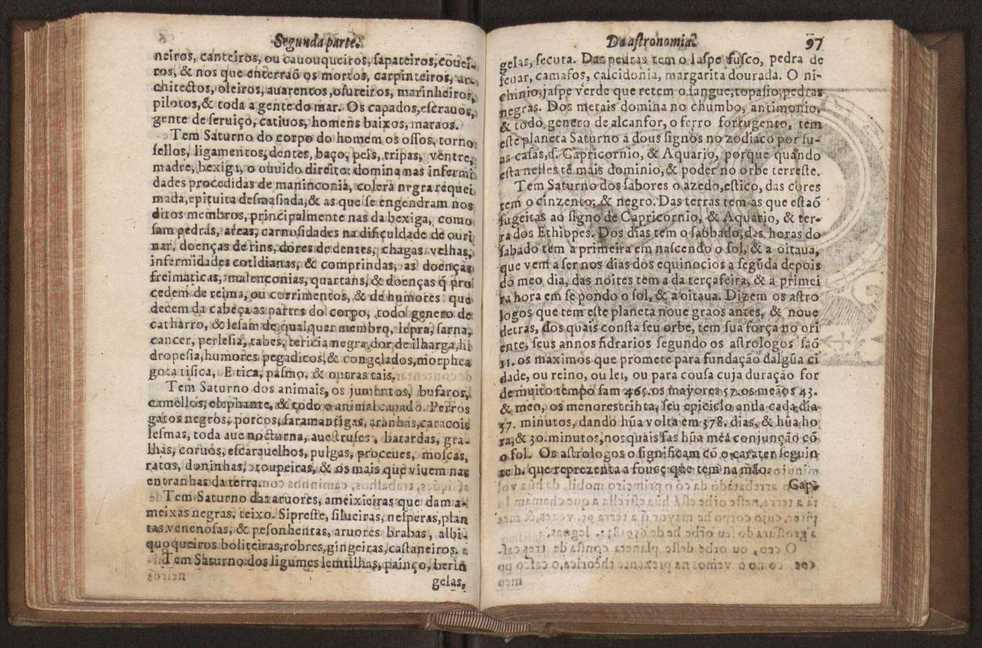 Segunda parte.
neiros, canteiros, ou cauouqueiros, sapateiros, couei-
ros, & nos que enterraõ os mortos, carpinteiros, ar-
chitectos, oleiros, auarentos, osureiros, marinheiros,
pilotos, & toda a gente do mar. Os capados, escrauos,
gente de seruiço, catiuos, homens baixos, maraos.
Tem Saturno do corpo do homem os ossos, torno
sellos, ligamentos, dentes, baço, peis, tripas, ventre,
madre, bexiga, o ouuido direito: domina nas infermi
dades procedidas de maninconia, colera negra requei
mada, epituita desmasiada, & as que se engendram nos
ditos membros, principalmente nas da bexiga, como
sam pedras, areas, carnosidades na dificuldade de ouri
nar, doenças de rins, dores de dentes, chagas velhas,
infermidades cotidianas, & compridas, as doenças
freimaticas, malenconias, quartans, & doenças q̃ pro
cedem de reima, ou corrimentos, & de humores que
decem da cabeça as partes do corpo, todo genero de
catharro, & lesam de qualquer membro, lepra, sarna,
cancer, perlesia, tabes, tericia negra, dor de ilharga, hi
dropesia, humores pegadiços, & congelados, morphea
gota tisica, Etica, pasmo, & outras tais.
Tem Saturno dos animais, os jumentos, bufaros,
camellos, elephante, & todo o animal capado. Perros
gatos negros, porcos, saramantigas, aranhas, caracois
lesmas, toda aue nocturna, auestruses, batardas, gra-
lhas, coruos, escarauelhos, pulgas, proceues, moscas,
ratos, doninhas, toupeiras, & os mais que viuem nas
entranhas da terra.
Tem Saturno das aruores, ameixieiras que dam a-
meixas negras, teixo. Sipreste, silueiras, nesperas, plan
tas venenosas, & pesonhentas, aruores brabas, albi-
quoqueiros boliteiras, robres, gingeiras, castaneiros.
Tem Saturno dos ligumes lentilhas, painço, berin
gelas,
Da astronomia.
97
gelas, secuta. Das pedras tem o Iaspe fusco, pedra de
ceuar, camafos, calcidonia, margarita dourada. O ni-
chinio, jaspe verde que retem o sangue, topasio, pedras
negras. Dos metais domina no chumbo, antimonio,
& todo genero de alcanfor, o ferro forrugento, tem
este planeta Saturno a dous signos no zodiaco por su-
as casas, s. Capricornio, & Aquario, porque quando
esta nelles tẽ mais dominio, & poder no orbe terreste.
Tem Saturno dos sabores o azedo, estico, das cores
tem o cinzento, & negro. Das terras tem as que estaõ
sugeitas ao signo de Capricornio, & Aquario, & ter-
ra dos Ethiopes. Dos dias tem o sabbado, das horas do
sabado tem a primeira em nascendo o sol, & a oitaua,
que vem a ser nos dias dos equinocios a segũda depois
do meo dia, das noites tem a da terçafeira, & a primei
ra hora em se pondo o sol, & a oitaua. Dizem os astro
logos que tem este planeta noue graos antes, & noue
detras, dos quais consta seu orbe, tem sua força no ori
ente, seus annos fidrarios segundo os astrologos saõ
11. os maximos que promete para fundação dalgũa ci
dade, ou reino, ou lei, ou para cousa cuja duração for
de muito tempo sam 465. os mayores 57. os meãos 43.
& meo, os menores trihta, seu epiciclo anda cada dia
57. minutos, dando hũa volta em 378. dias, & hũa ho
ra, & 30. minutos, nos quais fas hũa mea conjunção cõ
o sol. Os astrologos o significam cõ o carater seguin
te h. que reprezenta a fouse que tem na mão.
Cap.